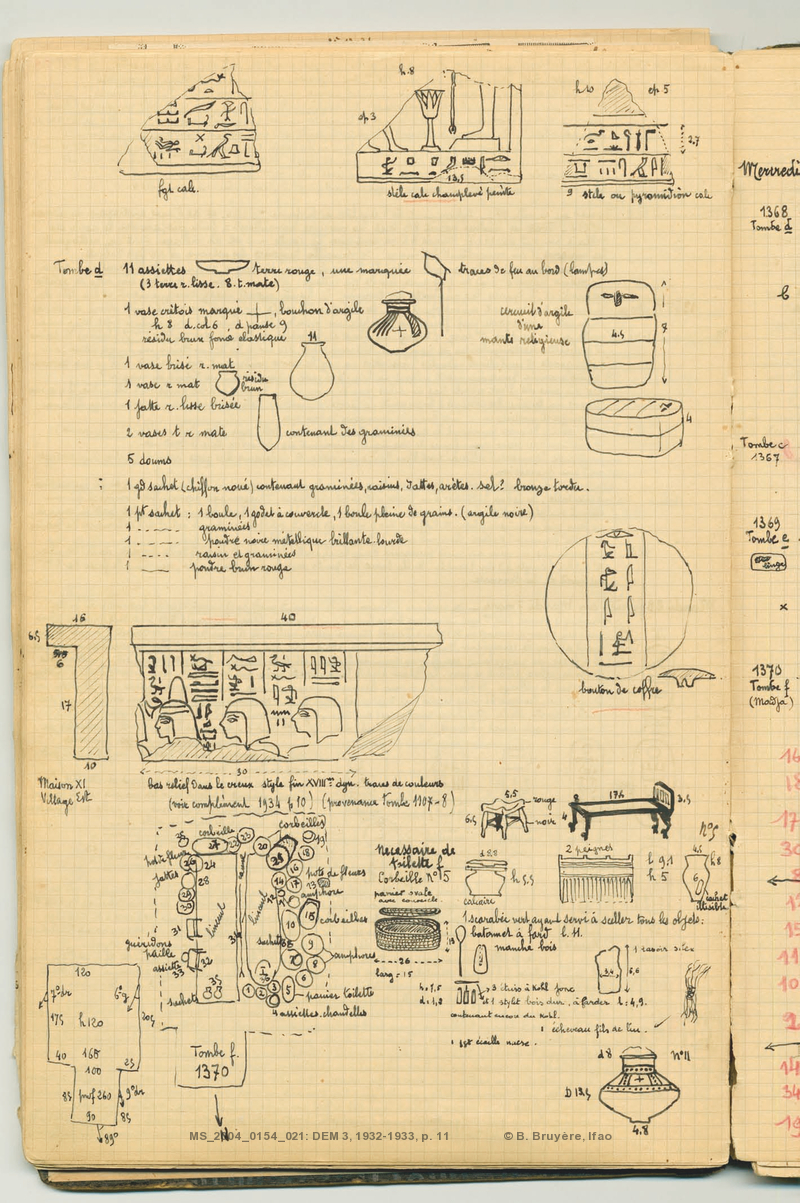 h. 8
ep. 3
h 10
ep. 5
2,7
13,5
9
fgt calc.
stèle calc champlevé peinte
stèle ou pyramidion calc
Mercredi
1368
Tombe d
Tombe d
11 assiettes terre rouge, une marquée traces de feu au bord (lampes)
(3 terre r. lisse. 8. t. mate)
1 vase crétois marqué , bouchon d'argile
h 8 d. col 6 , d panse 9
résidu brun foncé élastique
11
circuit d'argile
d'une
mante religieuse
4.5
8
1 vase brisé r. mat
1 vase r mat résidu brun
1 jatte r. lisse brisée
2 vases t r mate contenant des graminées
7
4
5 doums
1 gd sachet (chiffon noué) contenant graminées, raisins, dattes, arêtes. sel? bronze tordu.
1 pt sachet : 1 boule, 1 godet à couvercle, 1 boule pleine de grains. (argile noire)
1 graminées
1 poudre noire métallique brillante lourde
1 raisin et graminées
1 poudre brun rouge
Tombe c
1367
1369
Tombe e
linge
1370
Tombe f
(Madja)
15
6,5
6
17
10
40
30
bouton de coffre
Maison XI
Village Est
bas relief dans le creux style fin XVIIIme dyn. traces de couleurs
(voir complément 1934 p 10) (provenance Tombe 1307-8)
5,5
rouge
noir
6,5
17,5
4
corbeille
corbeilles
pots de fleurs
amphore
corbeilles
amphores
panier toilette
4 assiettes. chandelles
guéridons
paille
assiette
sachets
sachet
linceul
linceul
Nécessaire de
toilette f
Corbeille N° 15
panier ovale
avec couvercle
26
larg = 15
d 8.8
h 5,5
calcaire
2 peignes
l 9,1
h 5
N° 5
4,5
h 8
6
cachet
illisible
1 scarabée vert ayant servi à sceller tous les objets:
batonnet à fard l. 11.
manche bois
1 rasoir silex
3,4
6,6
3 étuis à Kohl jonc
et 1 stylet bois dur, à farder l = 4,9.
contenant encore du Kohl.
1 écheveau fils de lin.
1 fgt écaille nacre.
120
7° dr
6° g
175
h 120
205
40
160
25
100
85
prof 260
9° dr
90
85
89°
Tombe f.
1370
N
d 8
N° 11
D 13,5
4.8
MS_2004_0154_021: DEM 3, 1932-1933, p. 11 © B. Bruyère, Ifao